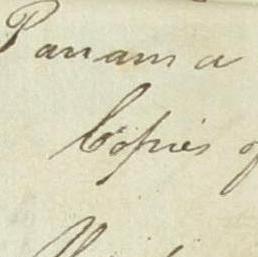 Panama
Copies of